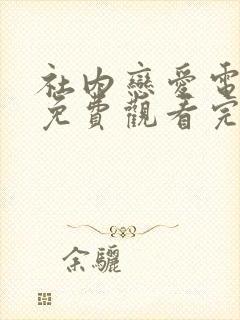 社内戀愛電
免費觀看完
余驪